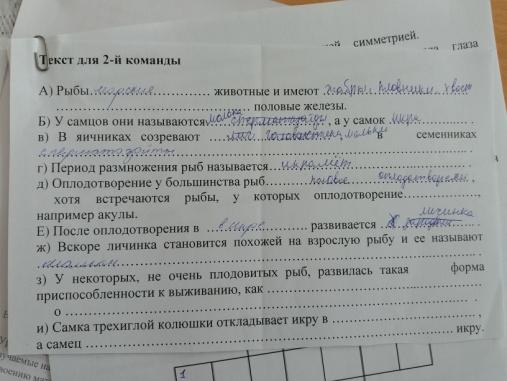 й симметрией.
глаза
Текст для 2-й команды
А) Рыбы морские животные и имеют жабры плавники хвост
половые железы.
Б) У самцов они называются молока, а у самок икра.
в) В яичниках созревают мальки в семенниках
сперматозоиды
г) Период размножения рыб называется икромёт.
д) Оплодотворение у большинства рыб половое оплодотворение,
хотя встречаются рыбы, у которых оплодотворение,
например акулы.
Е) После оплодотворения в икре развивается личинка
Ж) Вскоре личинка становится похожей на взрослую рыбу и ее называют
мальком
з) У некоторых, не очень плодовитых рыб, развилась такая форма
приспособленности к выживанию, как
о
и) Самка трехиглой колюшки откладывает икру в
а самец икру.
1